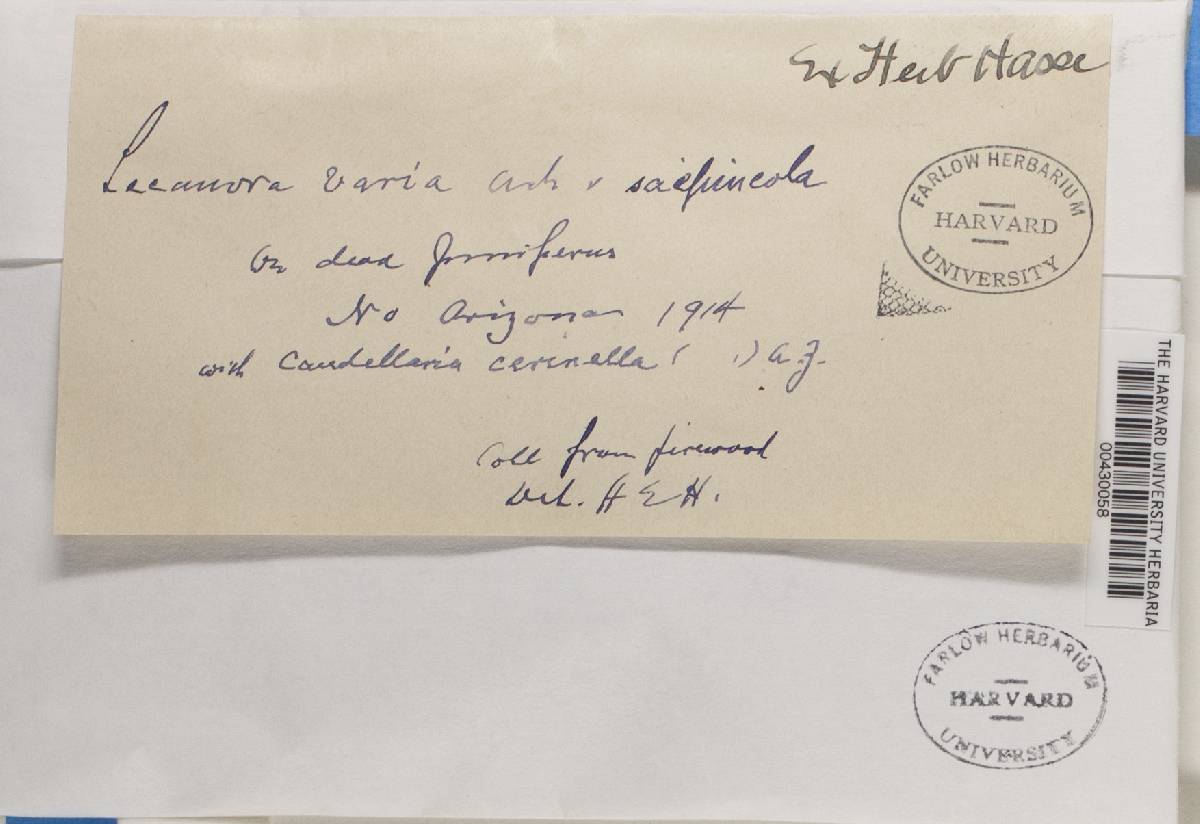 Ex Herb Hasse
Lecanora varia Ach v saepincola
On dead Juniperus
No Arizona 1914
with Candellaria cerinella ( ) A.Z.
Coll from firewood
Det. H E H.
FARLOW HERBARIUM
HARVARD
UNIVERSITY
THE HARVARD UNIVERSITY HERBARIA
00430058
FARLOW HERBARIUM
HARVARD
UNIVERSITY